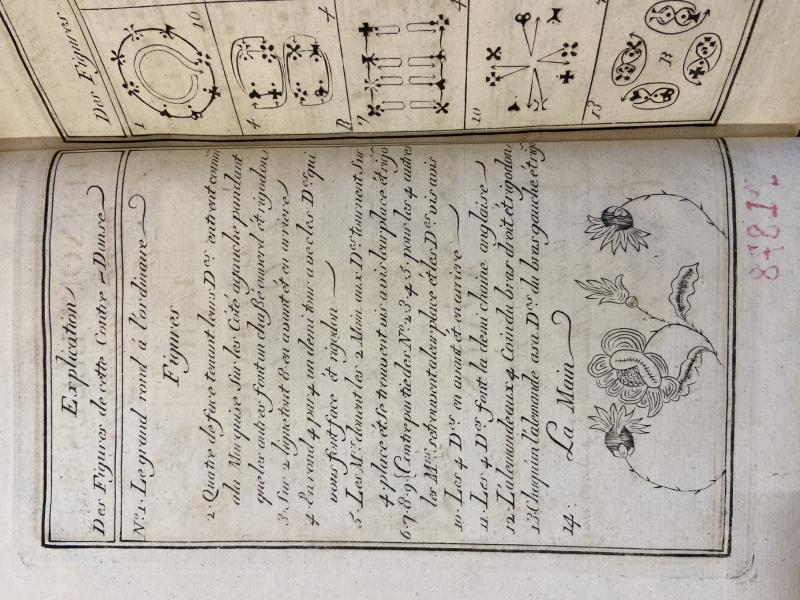 Des Figures.
1
16
4
4
B
7
4
10
13
B
Explication
Des Figures de cette Contre-Danse
No. 1. Le grand rond á l'ordinaire
Figures
2. Quatre de face tenant leurs Des entrent comm
ala Marquise sur les Coté agauche pandant
que les autres font un chaßé ouverd et rigodon
3. Sur 2 ligne tout 8 en avant et en arriere
4. En rond 4 par 4 un demi tour avec les Des qui
vous font face et rigodon
5. Les Mrs donent les 2 Main aux Des tournent sur
4 place et se trouvent vis avis leur place et rigo
6. 7. 8. 9. Contre partie des No. 2. 3. 4. 5. pour les 4 autres
les Mrs retrouvent a leur place et les Des vis avis
10. Les 4 Des en avant et en arriere
11. Les 4 Des font la demi chaine anglaise
12. L'alemande aux 4 Coin du bras droit et rigodon
13. Chaquun l'alemande a sa De du bras gauche et rigo
14. La Main
87817